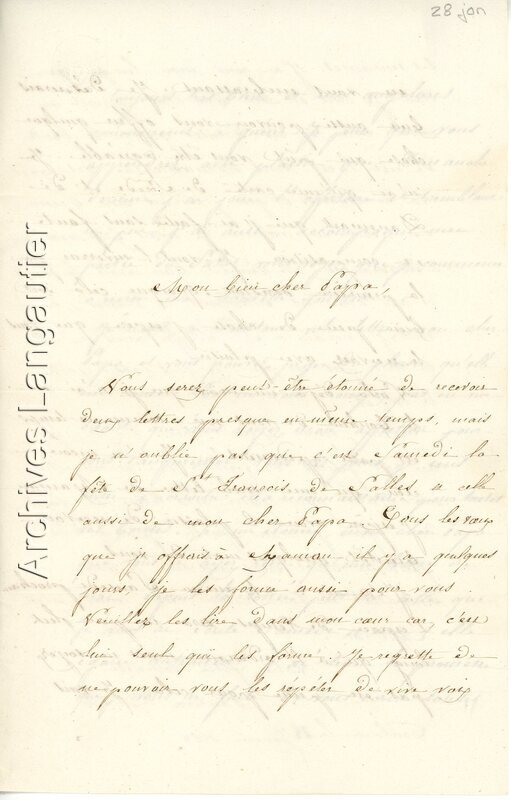 28 jan
Mon bien cher Papa,
Vous serez peut-être étonné de recevoir
deux lettres presque en même temps, mais
je n'oublie pas que c'est Samedi la
fête de St François de Salles et celle
aussi de mon cher Papa. Tous les vœux
que j'offrais à Maman il y a quelques
jours je les forme aussi pour vous.
Veuillez les lire dans mon cœur car c'est
lui seul qui les forme. Je regrette de
ne pouvoir vous les répéter de vive voix
Archives Langautier